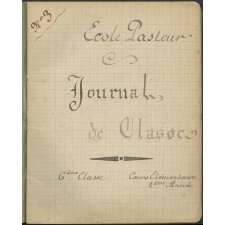 N° 3
Ecole Pasteur
Journal
de Classe
6ème Classe. Cours Elémentaire
2ème Année